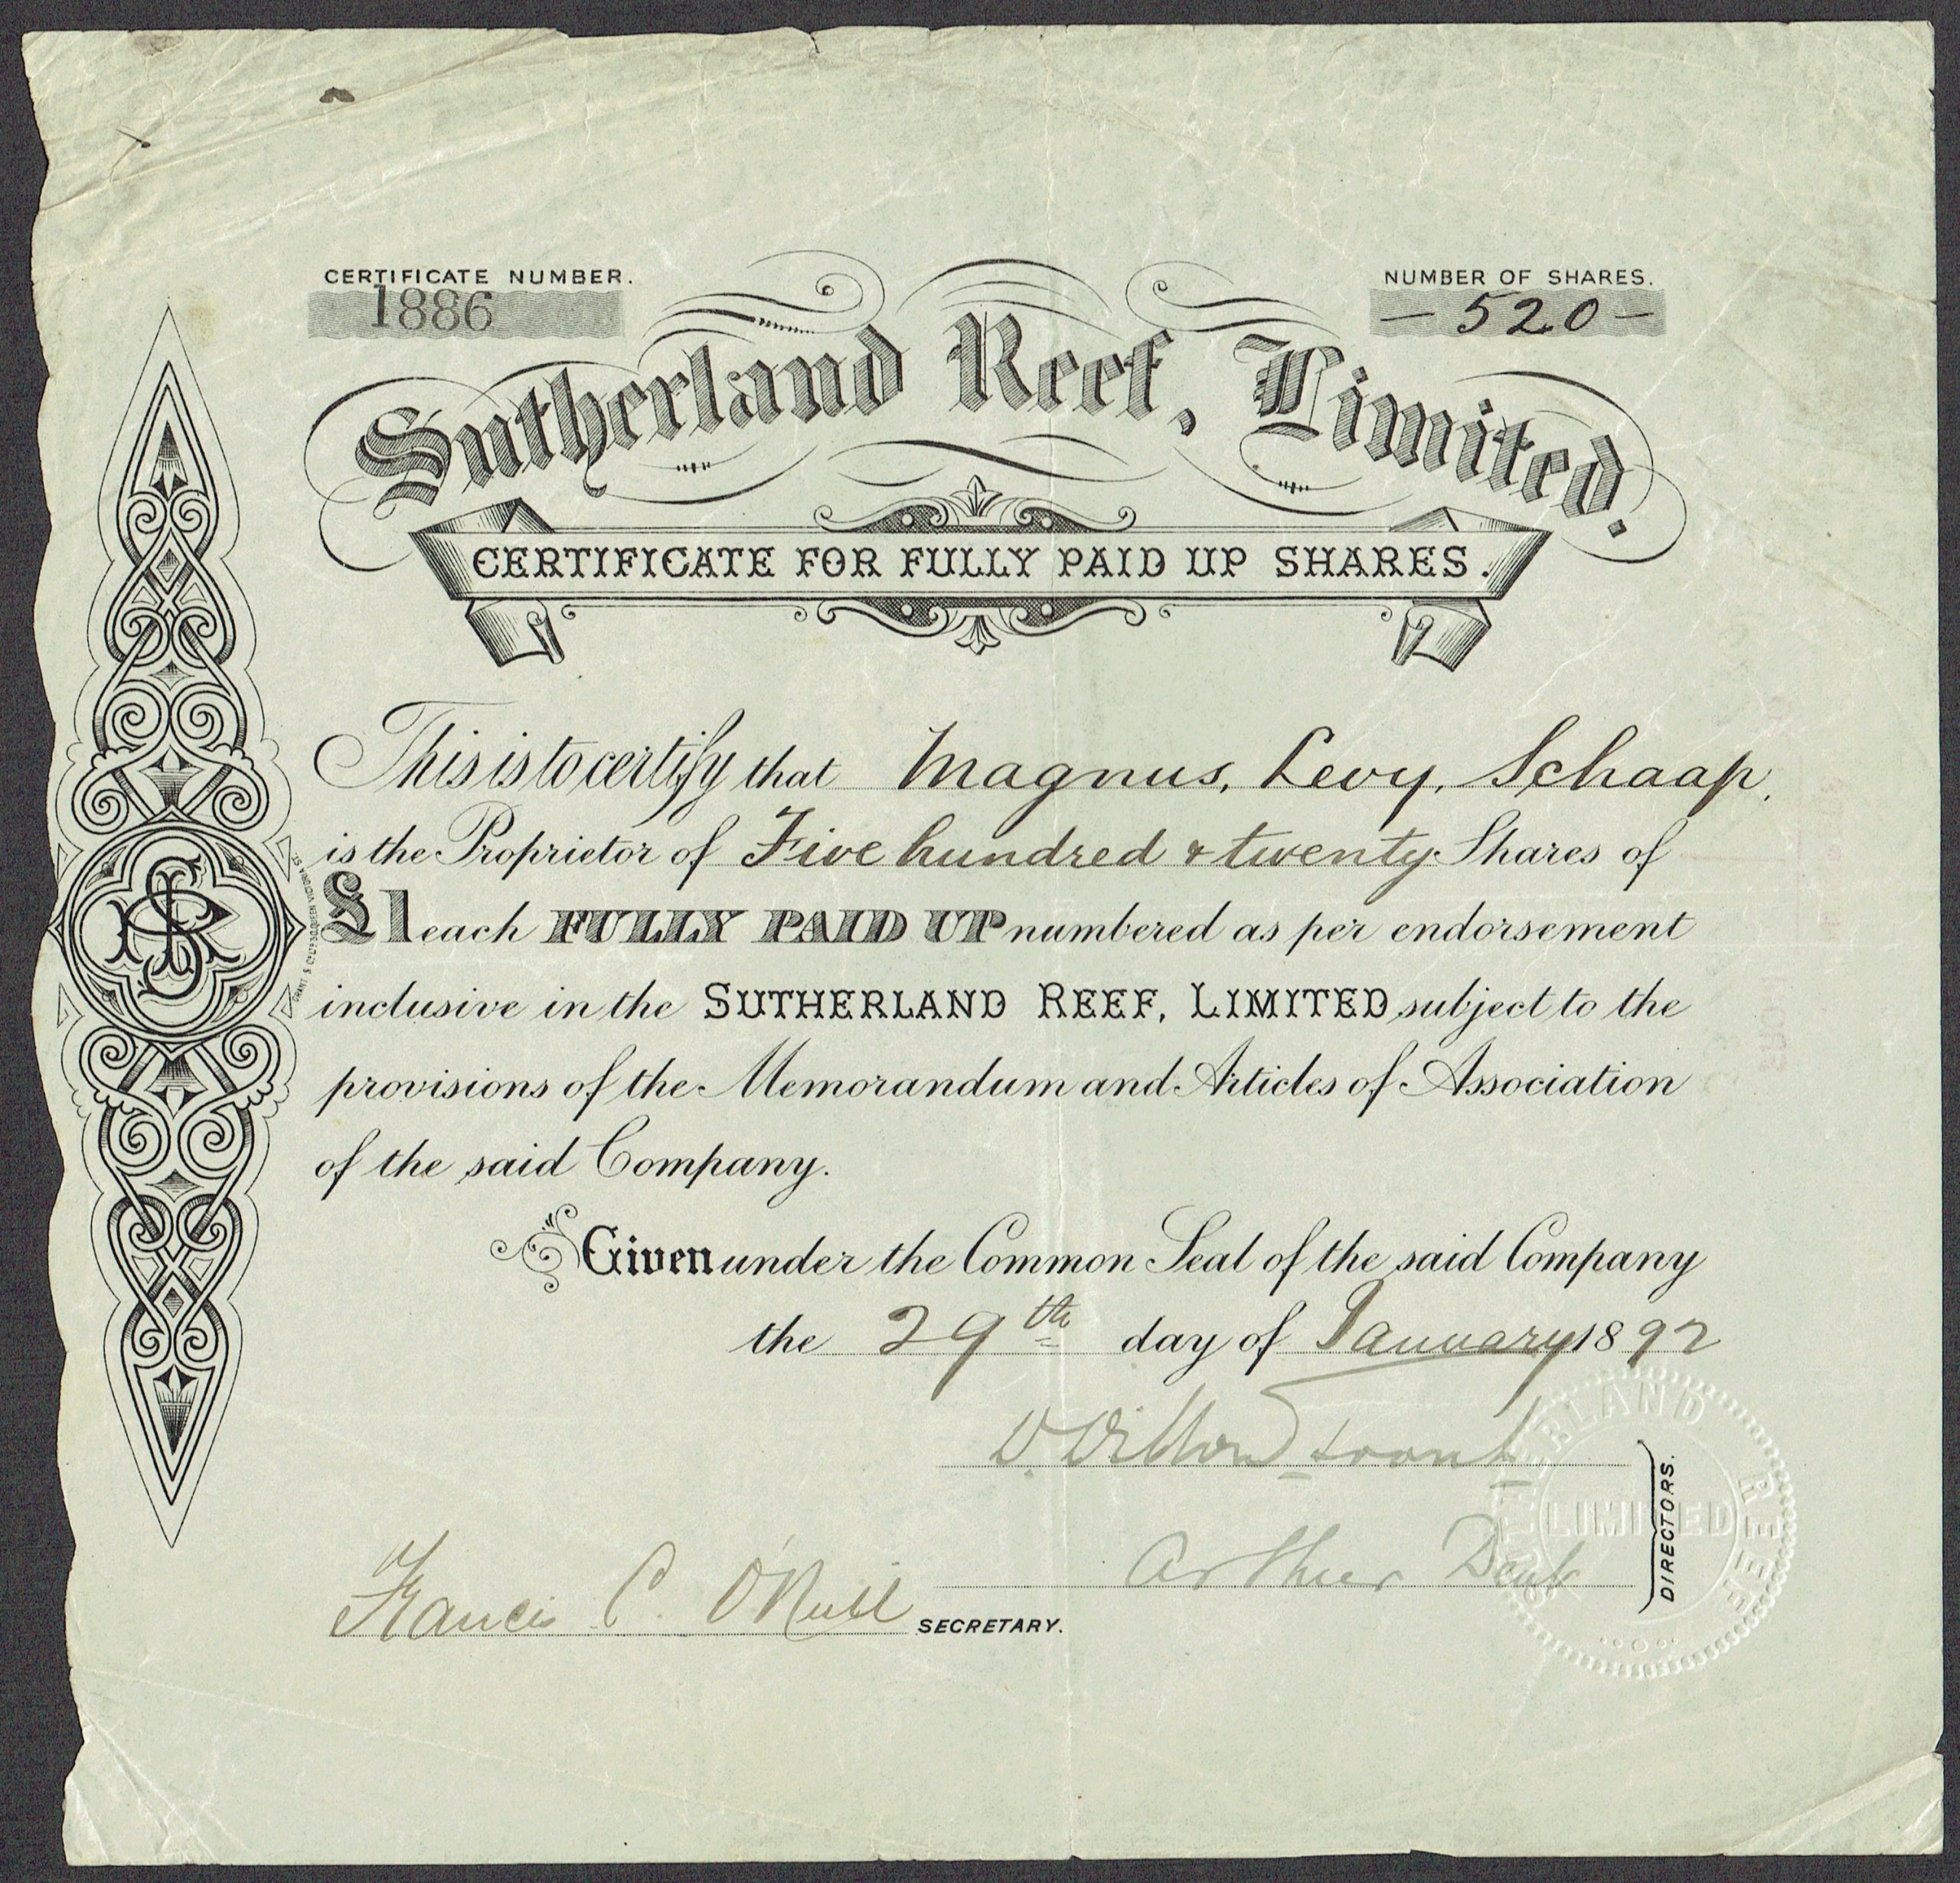 CERTIFICATE NUMBER.
1886
NUMBER OF SHARES.
— 520 —
Sutherland Reef, Limited.
CERTIFICATE FOR FULLY PAID UP SHARES.
This is to certify that Magnus, Levy, Schaap,
is the Proprietor of Five hundred & twenty Shares of
£1 each FULLY PAID UP numbered as per endorsement
inclusive in the SUTHERLAND REEF, LIMITED subject to the
provisions of the Memorandum and Articles of Association
of the said Company.
Given under the Common Seal of the said Company
the 29th day of January 1892
DIRECTORS.
Arthur
Francis C. O'Neill SECRETARY.
SUTHERLAND REEF
LIMITED
SR